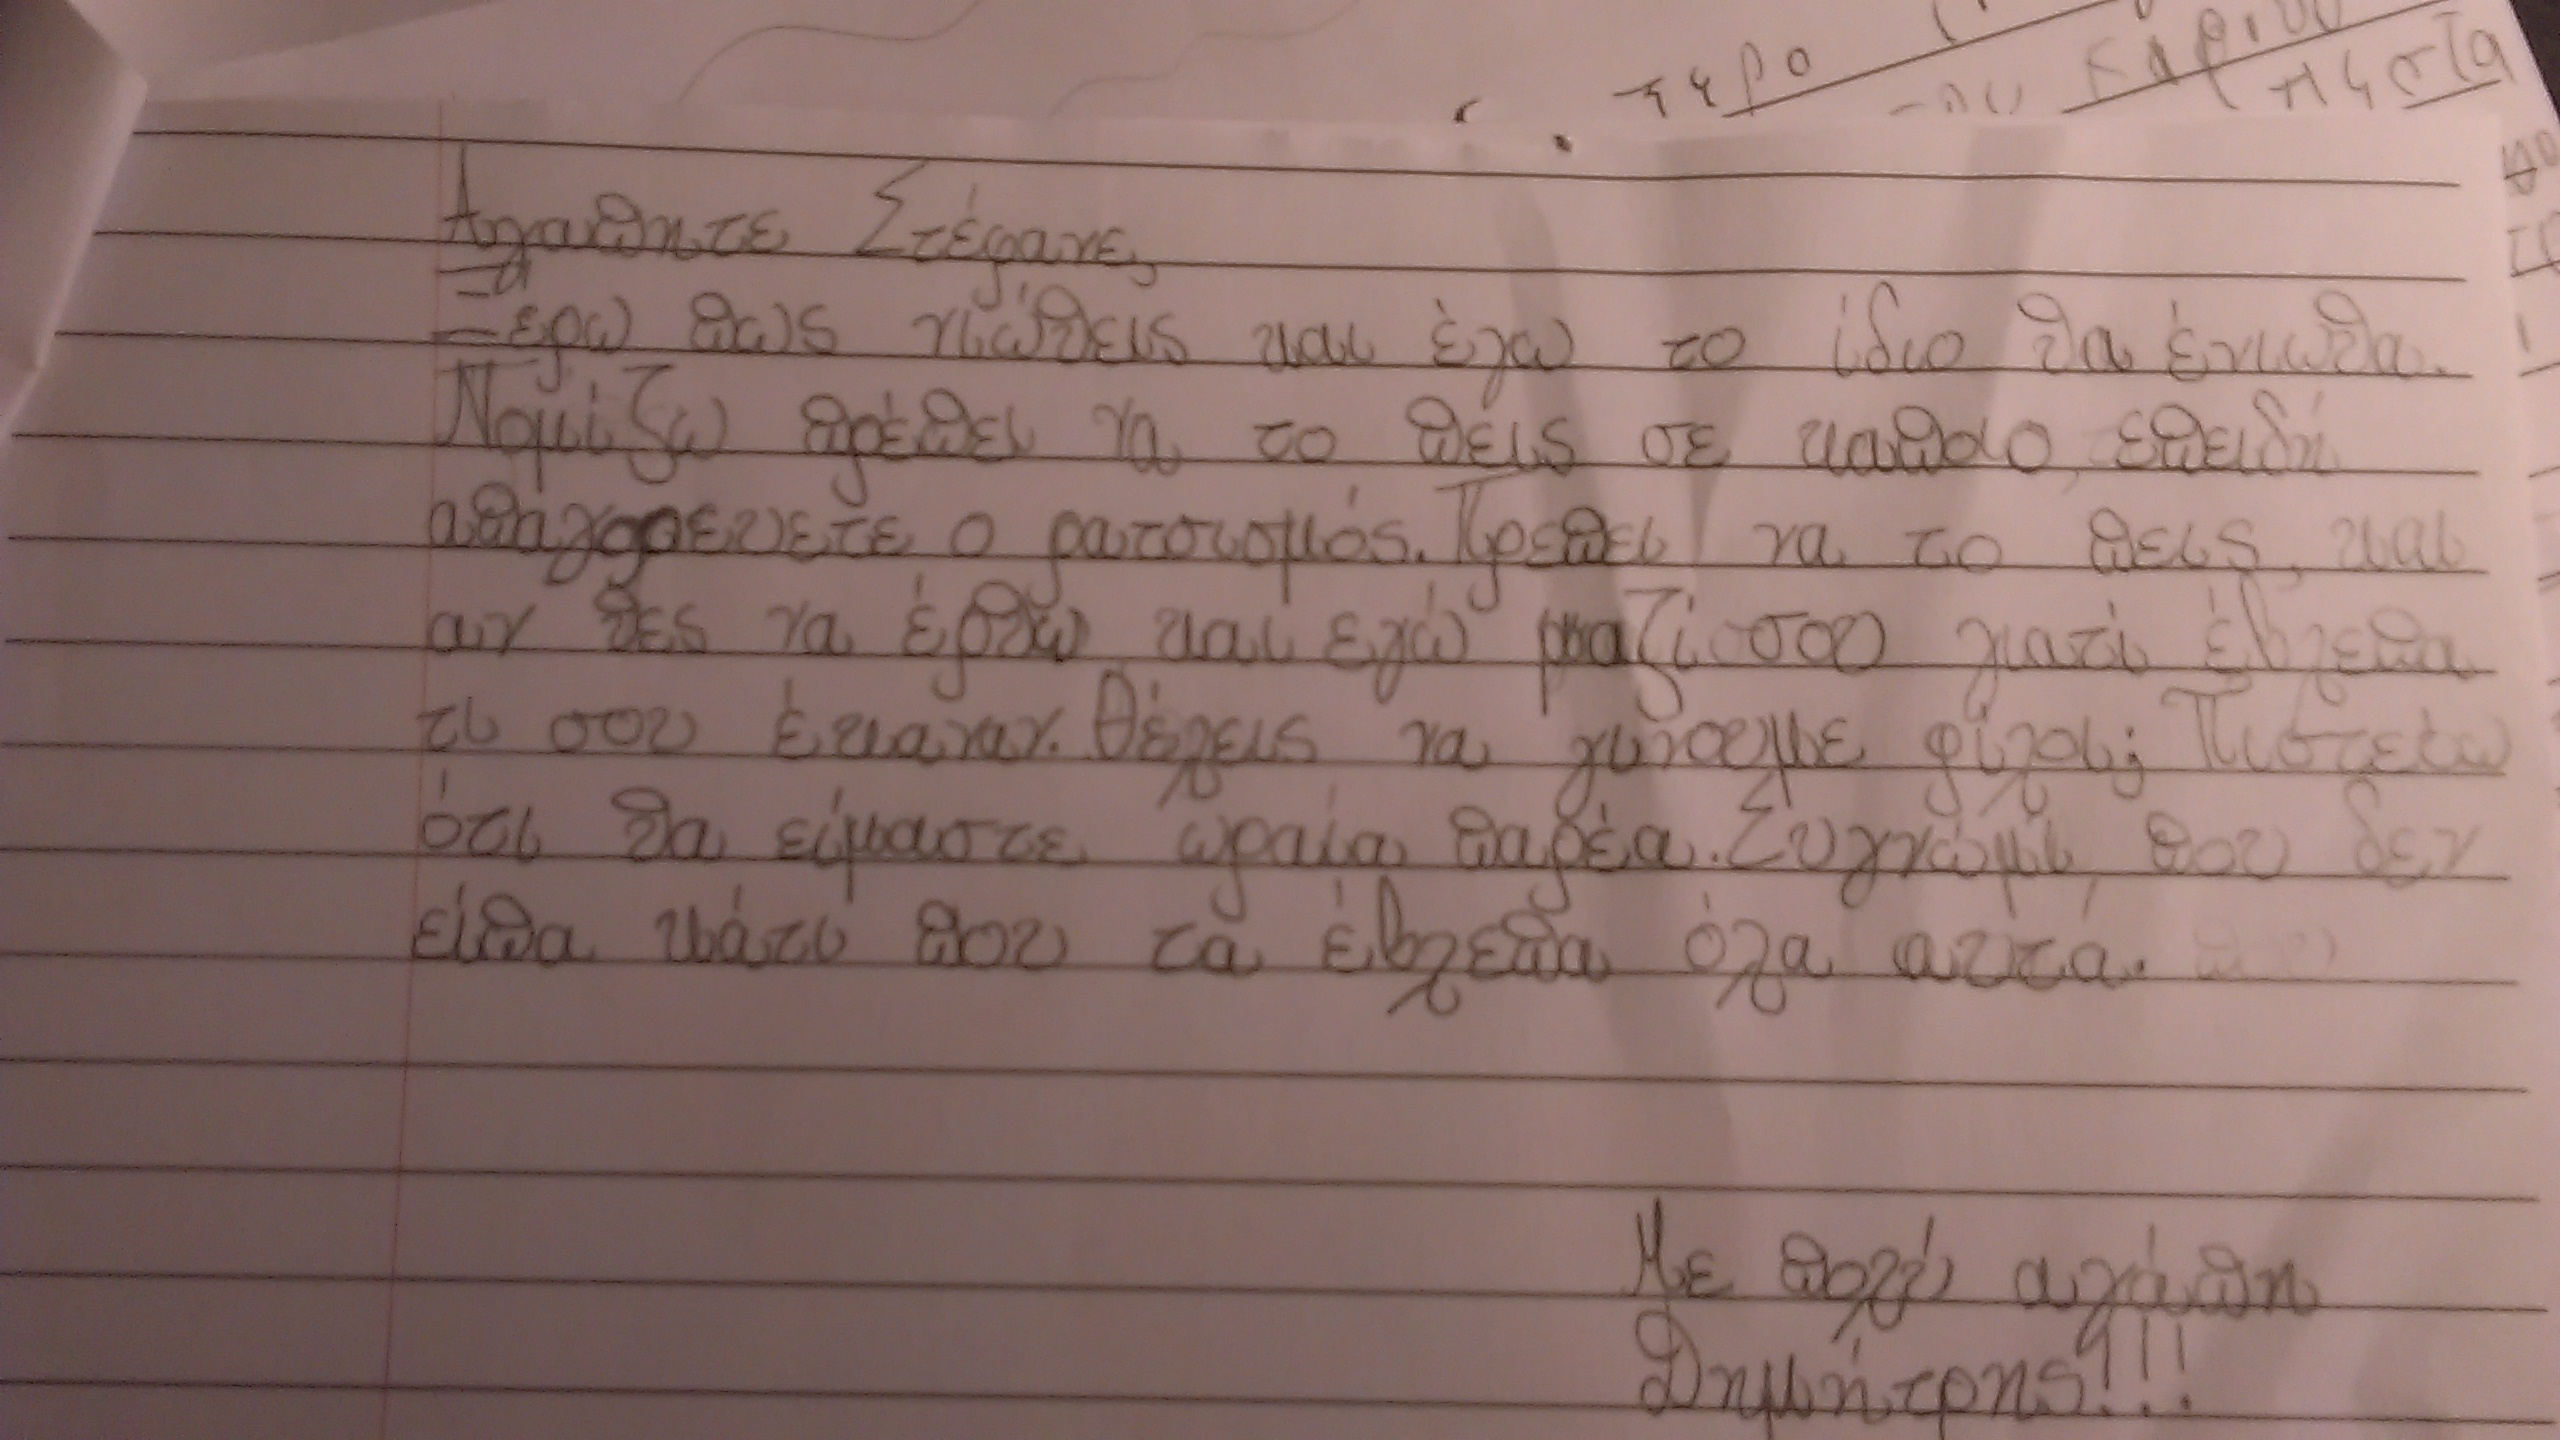 τερο
Αγαπητε Στέφανε,
Ξέρω πως νιώθεις και έγω το ίδιο θα ένιωθα.
Νομίζω πρέπει να το πείς σε καποιο, επειδή
απαγορευετε ο ρατσισμός. Πρεπει να το πεις, και
αν θες να έρθω και εγώ μαζί σου γιατί έβλεπα
τι σου έκαναν. Θέλεις να γίνουμε φίλοι; Πιστεύω
ότι θα είμαστε ωραία παρέα. Συγνώμι που δεν
είπα κάτι που τα έβλεπα όλα αυτά.
Με πολύ αγάπη
Δημήτρης!!!